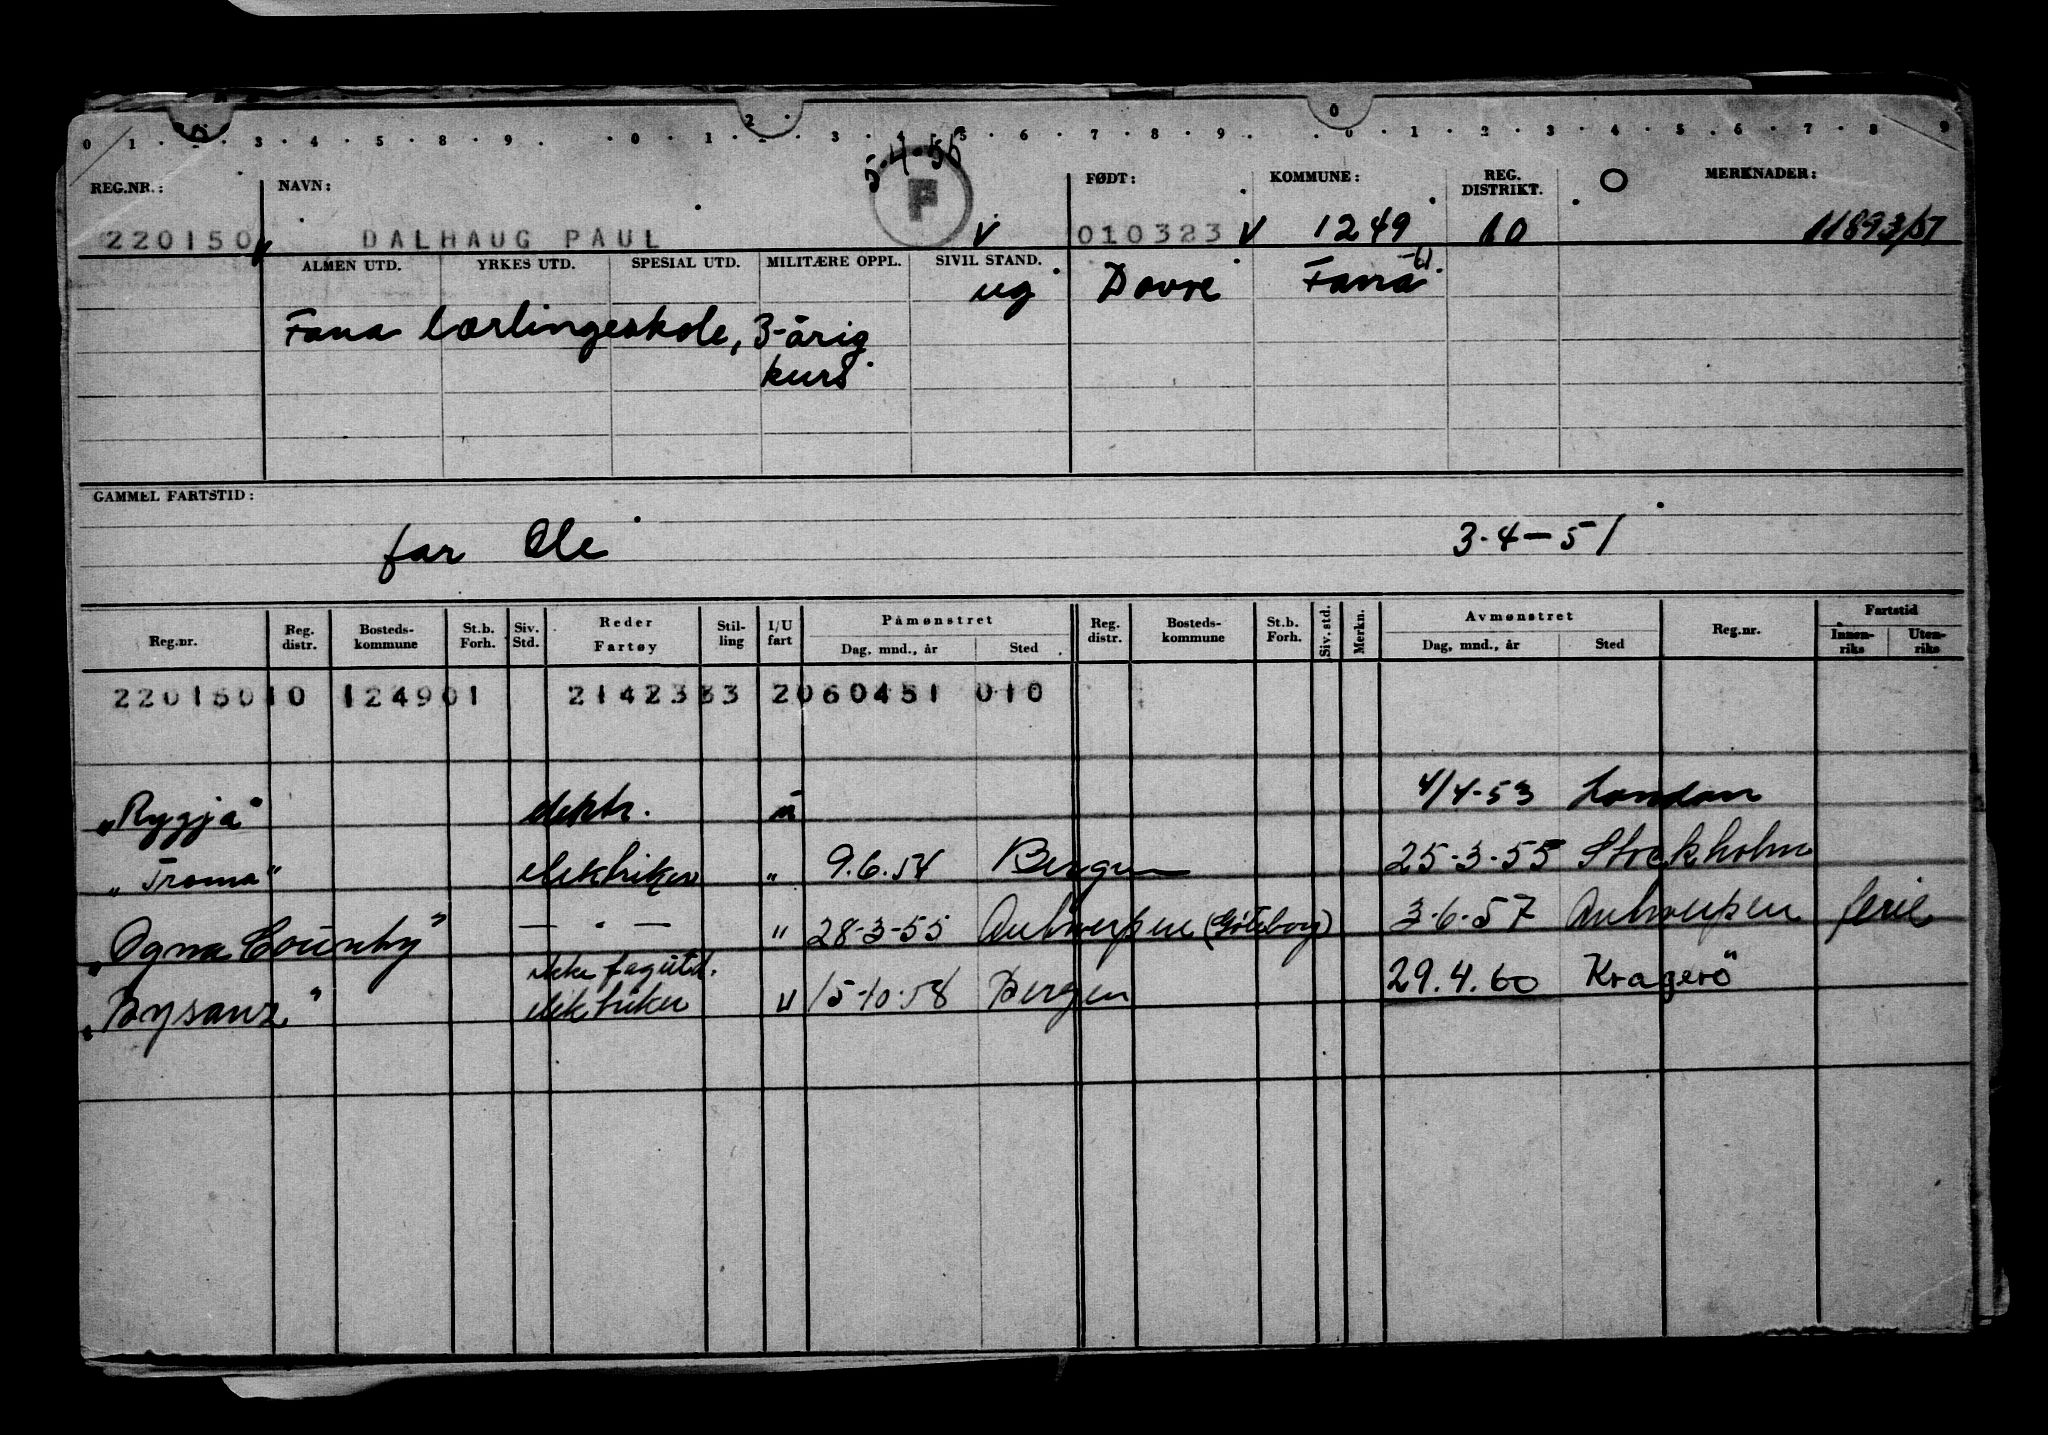 0 1 · 2 · 3 · 4 · 5 · 8 · 9 · · 0 · 1 · 2 · 3 · 4 · 5 · 6 · 7 · 8 · 9 · · 0 · 1 · 2 · 3 · 4 · 5 · 6 · 7 · 8 9
5.4.56
REG.NR.: NAVN: F FØDT: KOMMUNE: REG. DISTRIKT. O MERKNADER:
220150 DALHAUG PAUL V 010323 V 1249 10 11893/51
ALMEN UTD. YRKES UTD. SPESIAL UTD. MILITÆRE OPPL. SIVIL STAND.
ug Dovre Fana
Fana lærlingeskole, 3-årig
kurs
GAMMEL FARTSTID:
far Ole 3.4-51
Reg.nr. Reg. distr. Bosteds-kommune St.b. Forh. Siv. Std. Reder Fartøy Stil-ling I/U fart Påmønstret Dag, mnd., år Sted Reg. distr. Bosteds-kommune St.b. Forh. Siv. std. Merkn. Avmønstret Dag, mnd., år Sted Reg.nr. Fartstid Innen-riks Uten-riks
22015010 124901 2142333 2060451 010
„Rygja" elektr. u 4/4-53 London
„Troma" elektriker " 9.6.54 Bergen 25-3-55 Stockholm
„Ogna County" — " — " 28-3-55 Antwerpen (Göteborg) 3-6-57 Antwerpen ferie
ikke fagutd.
„Bysanz" elektriker u 15-10-58 Bergen 29.4.60 Kragerö